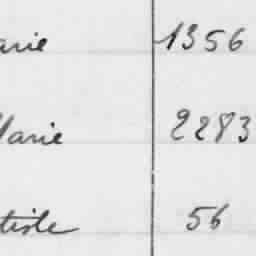 arie 1356
Marie 2283
tiste 56